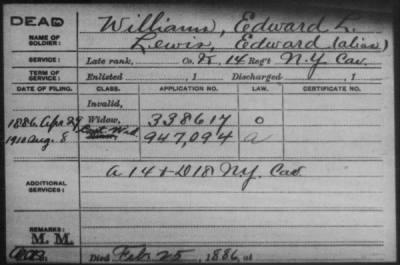 DEAD
NAME OF SOLDIER: Williams, Edward L.
Lewis, Edward (alias)
SERVICE: Late rank, Co. 14 Reg't N.Y. Cav.
TERM OF SERVICE: Enlisted , 1 Discharged , 1
DATE OF FILING. CLASS. APPLICATION NO. LAW. CERTIFICATE NO.
Invalid,
1886 Apr. 29 Widow, 338617 o
1910 Aug. 8 947,094 a
ADDITIONAL SERVICES: A 14 + D 18 N.Y. Cav.
REMARKS:
M. M.
Died Feb. 25, 1886, at